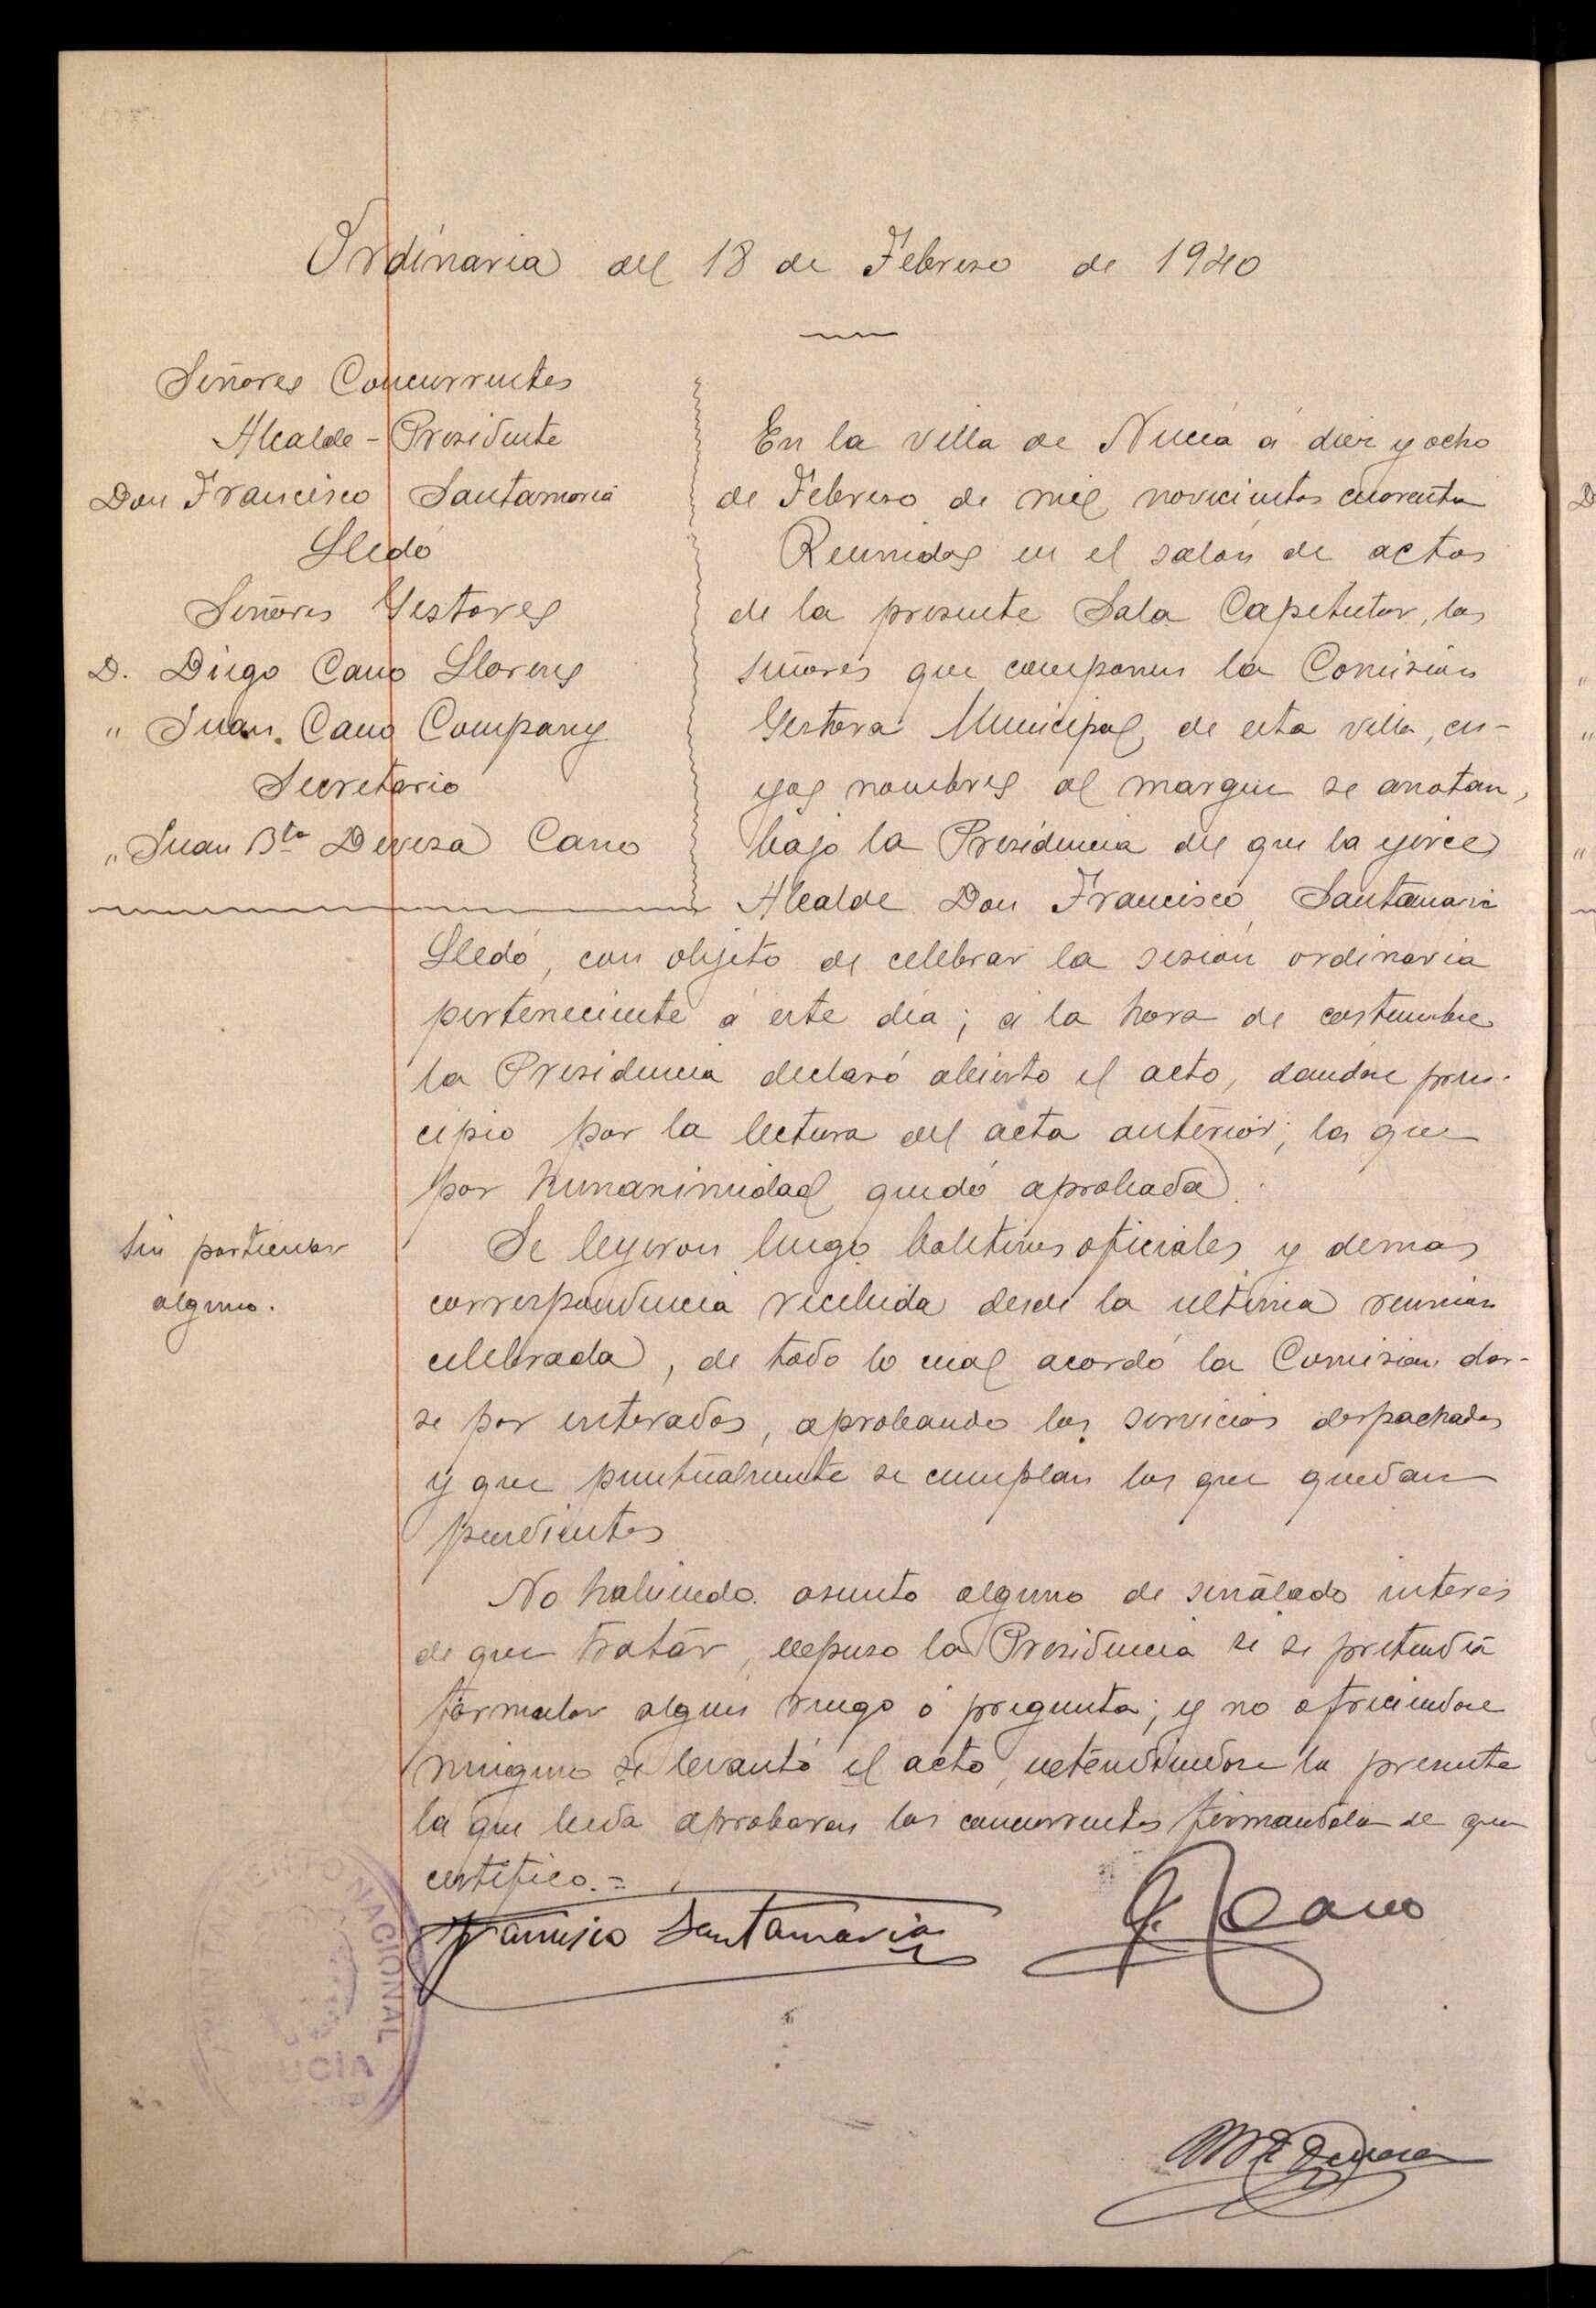 Ordinaria del 18 de Febrero de 1940
Señores Concurrentes
Alcalde - Presidente
Don Francisco Santamaria
Lledó
Señores Gestores
D. Diego Cano Llorens
" Juan Cano Company
Secretario
" Juan Bta Devesa Cano
En la villa de Nucía á diez y ocho
de Febrero de mil novecientos cuarenta
Reunidos en el salón de actos
de la presente Sala Capitular, los
señores que componen la Comisión
Gestora Municipal, de esta villa, cu-
yos nombres al margen se anotan,
bajo la Presidencia del que la ejerce
Alcalde Don Francisco Santamaria
Lledó, con objeto de celebrar la sesión ordinaria
perteneciente á este día; á la hora de costumbre
la Presidencia declaró abierto el acto, dandose prin-
cipio por la lectura del acta anterior; la que
por hunanimidad quedó aprobada.
Sin particular
alguno.
Se leyeron luego boletines oficiales y demas
correspondencia recibida desde la ultima reunion
celebrada, de todo lo cual acordó la Comision dar-
se por enterados, aprobando los servicios despachados
y que puntualmente se cumplan los que quedan
pendientes
No habiendo asunto alguno de señalado interés
de que tratar, expuso la Presidencia si se pretendía
formular algun ruego ó pregunta; y no ofreciendose
ninguno se levantó el acto, extendiendose la presente
la que leida aprobaron los concurrentes firmandola de que
certifico.=
Francisco Santamaria
Cano
Devesa
NACIONAL
NUCIA